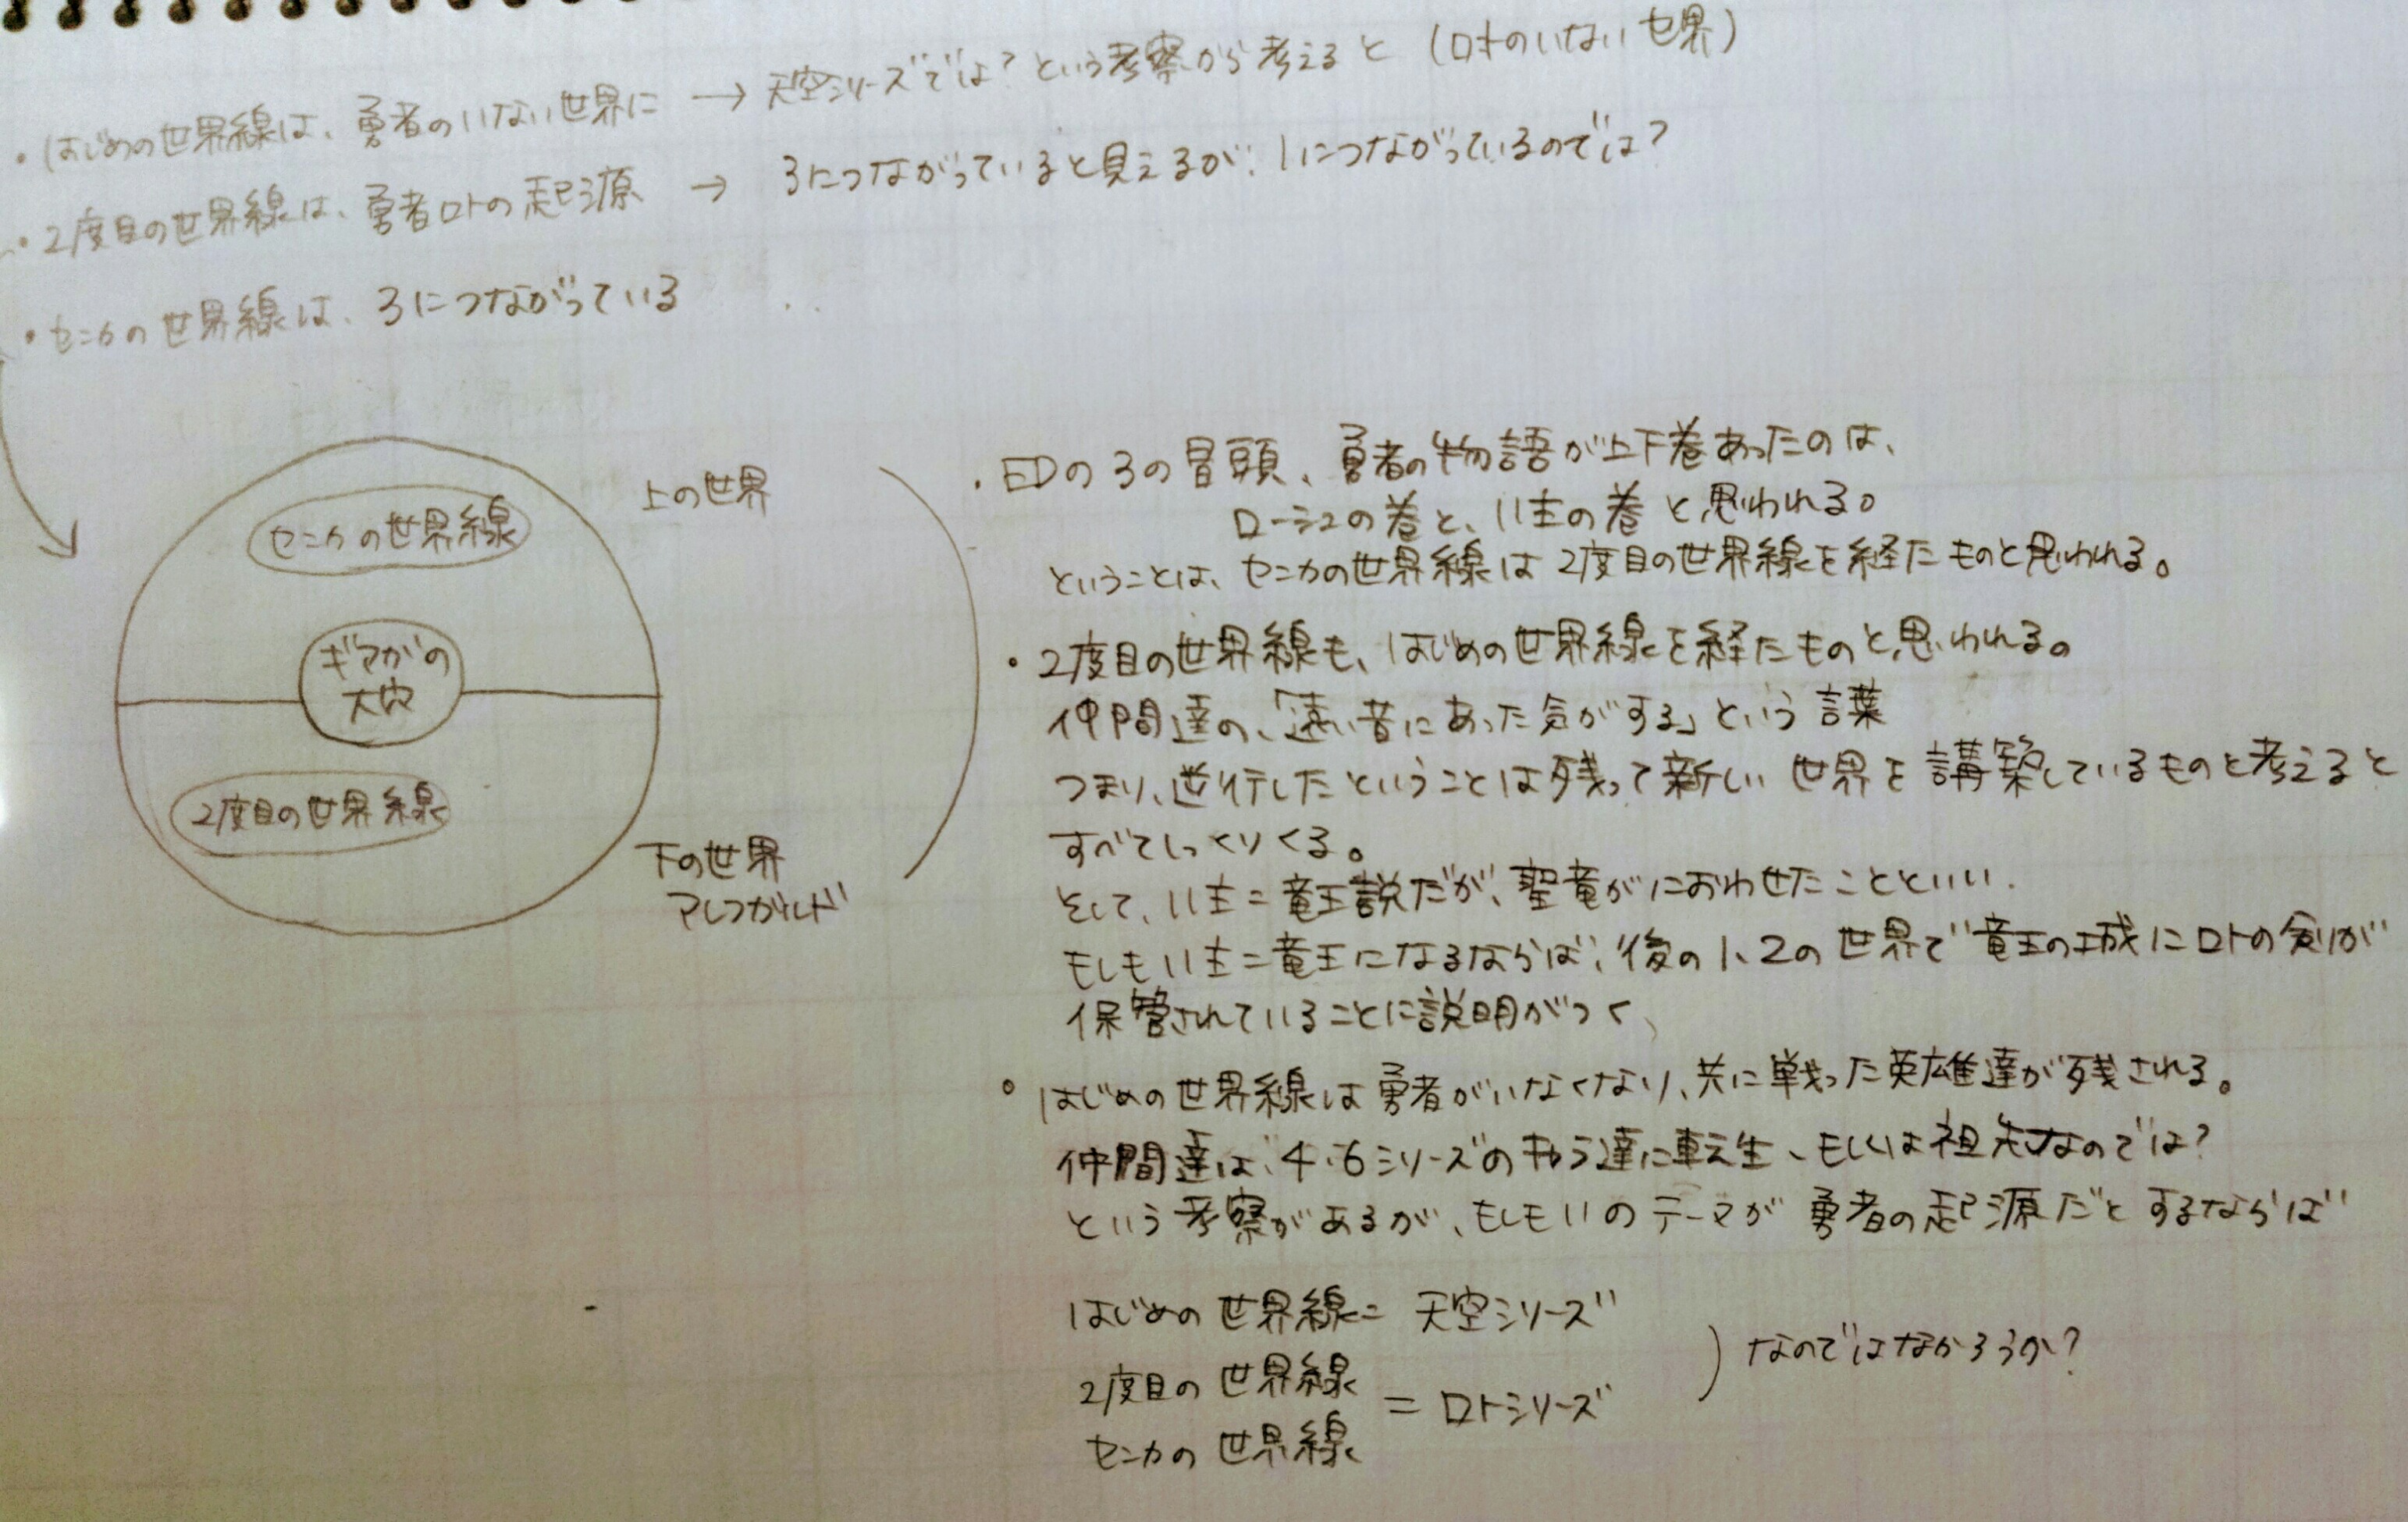 ・はじめの世界線は、勇者のいない世界に → 天空シリーズでは？という考察から考えると（ロトのいない世界）
・2度目の世界線は、勇者ロトの起源 → 3につながっていると見えるが、1につながっているのでは？
・セニカの世界線は、3につながっている
セニカの世界線
上の世界
ギアガの
大穴
2度目の世界線
下の世界
アレフガルド
・EDの3の冒頭、勇者の物語が上下巻あったのは、
ローシュの巻と、11主の巻と思われる。
ということは、セニカの世界線は2度目の世界線を経たものと思われる。
・2度目の世界線も、はじめの世界線を経たものと思われる。
仲間達の、「遠い昔にあった気がする」という言葉
つまり、逆行したということは残って新しい世界を構築しているものと考えると
すべてしっくりくる。
そして、11主=竜王説だが、聖竜がにおわせたことといい、
もしも11主=竜王になるならば、後の1、2の世界で竜王の城にロトの剣が
保管されていることに説明がつく、
・はじめの世界線は勇者がいなくなり、共に戦った英雄達が残される。
仲間達は、4・6シリーズのキャラ達に転生、もしくは祖先なのでは？
という考察があるが、もしも11のテーマが勇者の起源だとするならば
はじめの世界線= 天空シリーズ
2度目の世界線
= ロトシリーズ
セニカの世界線
) なのではなかろうか？